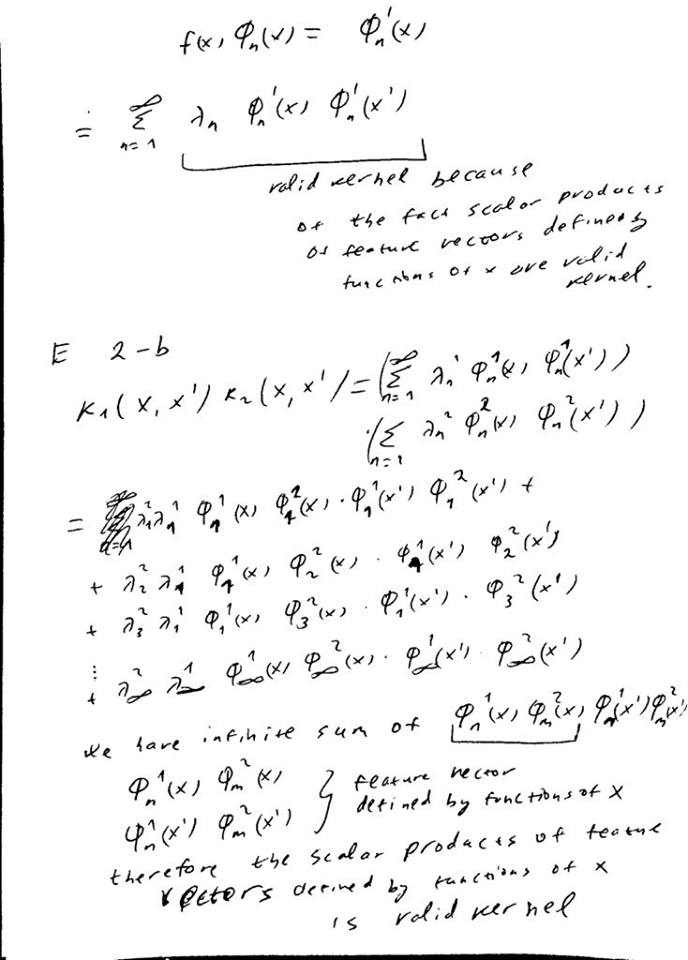 f(x) φₙ(x) = φₙ'(x)
= ∞Σn=1 λₙ φₙ'(x) φₙ'(x')
valid kernel because
of the fact scalar products
of feature vectors defined by
functions of x are valid
kernel.
E 2-b
K₁(x, x') K₂(x, x') = (∞Σn=1 λₙ¹ φₙ¹(x) φₙ¹(x'))
(Σn=1 λₙ² φₙ²(x) φₙ²(x'))
= λ₁² λ₁¹ φ₁¹(x) φ₁²(x) · φ₁¹(x') φ₁²(x') +
+ λ₂² λ₁¹ φ₁¹(x) φ₂²(x) · φ₁¹(x') φ₂²(x')
+ λ₃² λ₁¹ φ₁¹(x) φ₃²(x) · φ₁¹(x') · φ₃²(x')
⋮
+ λ∞² λ∞¹ φ∞¹(x) φ∞²(x) · φ∞¹(x') · φ∞²(x')
we have infinite sum of φₙ¹(x) φₘ²(x) φₙ¹(x') φₘ²(x')
φₙ¹(x) φₘ²(x) } feature vector
φₙ¹(x') φₘ²(x') defined by functions of x
therefore the scalar products of feature
vectors defined by functions of x
is valid kernel